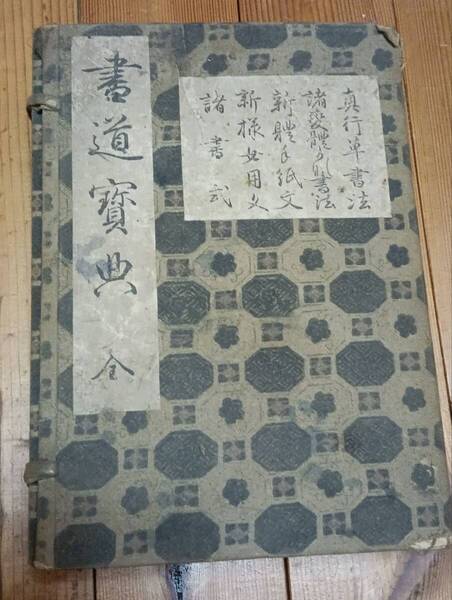 書道寶典 全
真行草書法
諸變體書法
新體手紙文
新樣女用文
諸書式